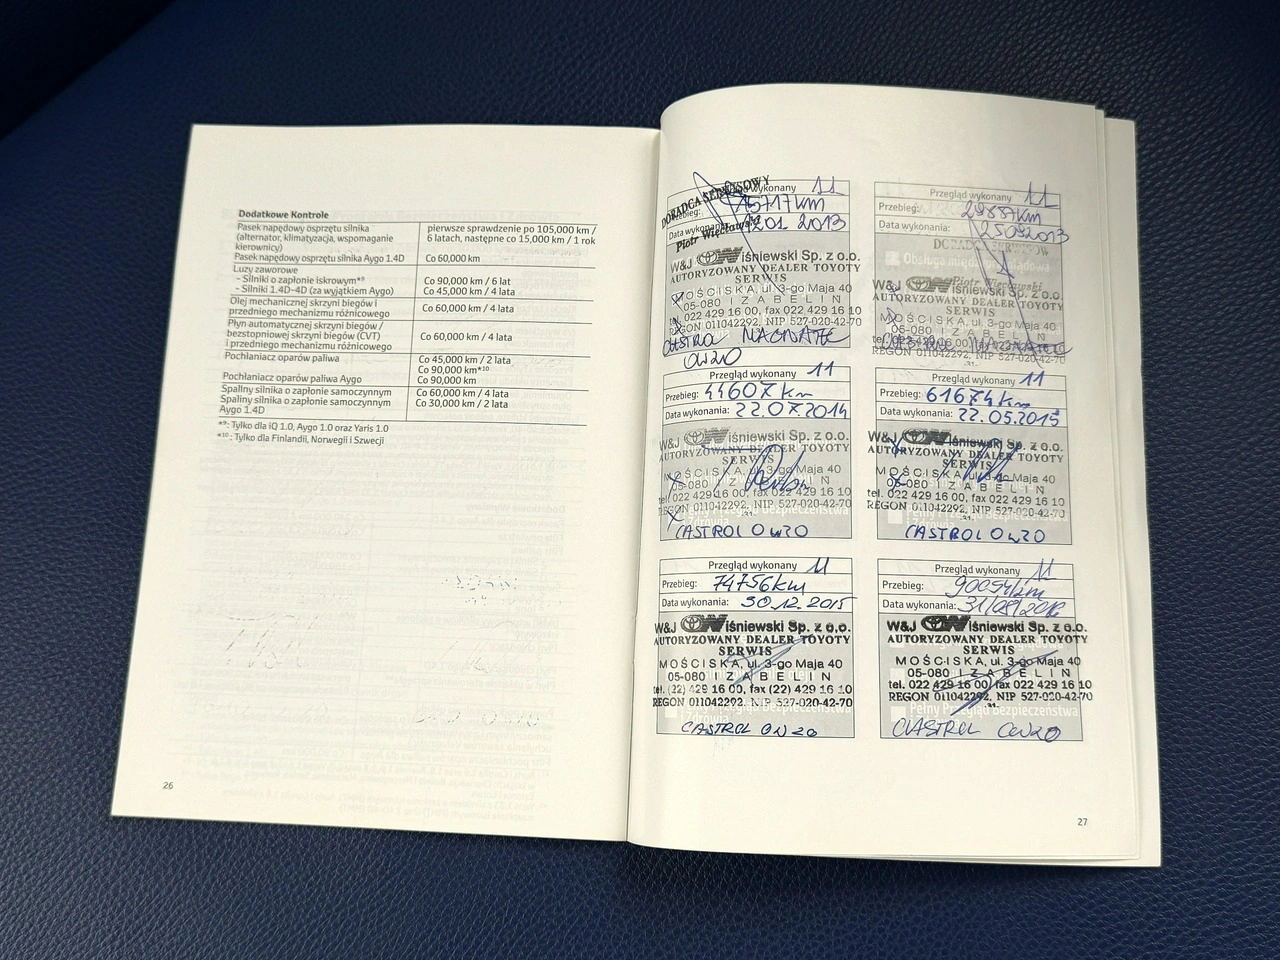 Dodatkowe Kontrole
Pasek napędowy osprzętu silnika pierwsze sprawdzenie po 105,000 km /
(alternator, klimatyzacja, wspomaganie 6 latach, następne co 15,000 km / 1 rok
kierownicy)
Pasek napędowy osprzętu silnika Aygo 1.4D Co 60,000 km
Luzy zaworowe
- Silniki o zapłonie iskrowym*⁹ Co 90,000 km / 6 lat
- Silniki 1.4D-4D (za wyjątkiem Aygo) Co 45,000 km / 4 lata
Olej mechanicznej skrzyni biegów i Co 60,000 km / 4 lata
przedniego mechanizmu różnicowego
Płyn automatycznej skrzyni biegów /
bezstopniowej skrzyni biegów (CVT) Co 60,000 km / 4 lata
i przedniego mechanizmu różnicowego
Pochłaniacz oparów paliwa Co 45,000 km / 2 lata
Co 90,000 km*¹⁰
Pochłaniacz oparów paliwa Aygo Co 90,000 km
Spaliny silnika o zapłonie samoczynnym Co 60,000 km / 4 lata
Spaliny silnika o zapłonie samoczynnym Co 30,000 km / 2 lata
Aygo 1.4D
*⁹: Tylko dla iQ 1.0, Aygo 1.0 oraz Yaris 1.0
*¹⁰: Tylko dla Finlandii, Norwegii i Szwecji
26
DORADCA SERWISOWY
wykonany 11
Przebieg: 15717 km
Data 2013
Piotr Więcławski
W&J Wiśniewski Sp. z o.o.
AUTORYZOWANY DEALER TOYOTY
SERWIS
MOŚCISKA, ul. 3-go Maja 40
05-080 IZABELIN
tel. 022 429 16 00, fax 022 429 16 10
REGON 011042292, NIP 527-020-42-70
0W20
Przegląd wykonany 11
Przebieg: km
Data wykonania: 2013
W&J Wiśniewski Sp. z o.o.
AUTORYZOWANY DEALER TOYOTY
SERWIS
MOŚCISKA, ul. 3-go Maja 40
05-080 IZABELIN
REGON 011042292, NIP 527-020-42-70
Przegląd wykonany 11
Przebieg: 44607 km
Data wykonania: 22.07.2014
W&J Wiśniewski Sp. z o.o.
AUTORYZOWANY DEALER TOYOTY
SERWIS
MOŚCISKA, ul. 3-go Maja 40
05-080 IZABELIN
tel. 022 429 16 00, fax 022 429 16 10
REGON 011042292, NIP 527-020-42-70
Pełny Przegląd Bezpieczeństwa
i Zdrowia
CASTROL 0W20
Przegląd wykonany 11
Przebieg: 61674 km
Data wykonania: 22.05.2015
W&J Wiśniewski Sp. z o.o.
AUTORYZOWANY DEALER TOYOTY
SERWIS
MOŚCISKA, ul. 3-go Maja 40
05-080 IZABELIN
tel. 022 429 16 00, fax 022 429 16 10
REGON 011042292, NIP 527-020-42-70
Pełny Przegląd Bezpieczeństwa
i Zdrowia
CASTROL 0W20
Przegląd wykonany 11
Przebieg: 74756 km
Data wykonania: 30.12.2015
W&J Wiśniewski Sp. z o.o.
AUTORYZOWANY DEALER TOYOTY
SERWIS
MOŚCISKA, ul. 3-go Maja 40
05-080 IZABELIN
tel. (22) 429 16 00, fax (22) 429 16 10
REGON 011042292, NIP 527-020-42-70
Pełny Przegląd Bezpieczeństwa
i Zdrowia
CASTROL 0W20
Przegląd wykonany 11
Przebieg: 90054 km
Data wykonania:
W&J Wiśniewski Sp. z o.o.
AUTORYZOWANY DEALER TOYOTY
SERWIS
MOŚCISKA, ul. 3-go Maja 40
05-080 IZABELIN
tel. 022 429 16 00, fax 022 429 16 10
REGON 011042292, NIP 527-020-42-70
Pełny Przegląd Bezpieczeństwa
i Zdrowia
CASTROL 0W20
27